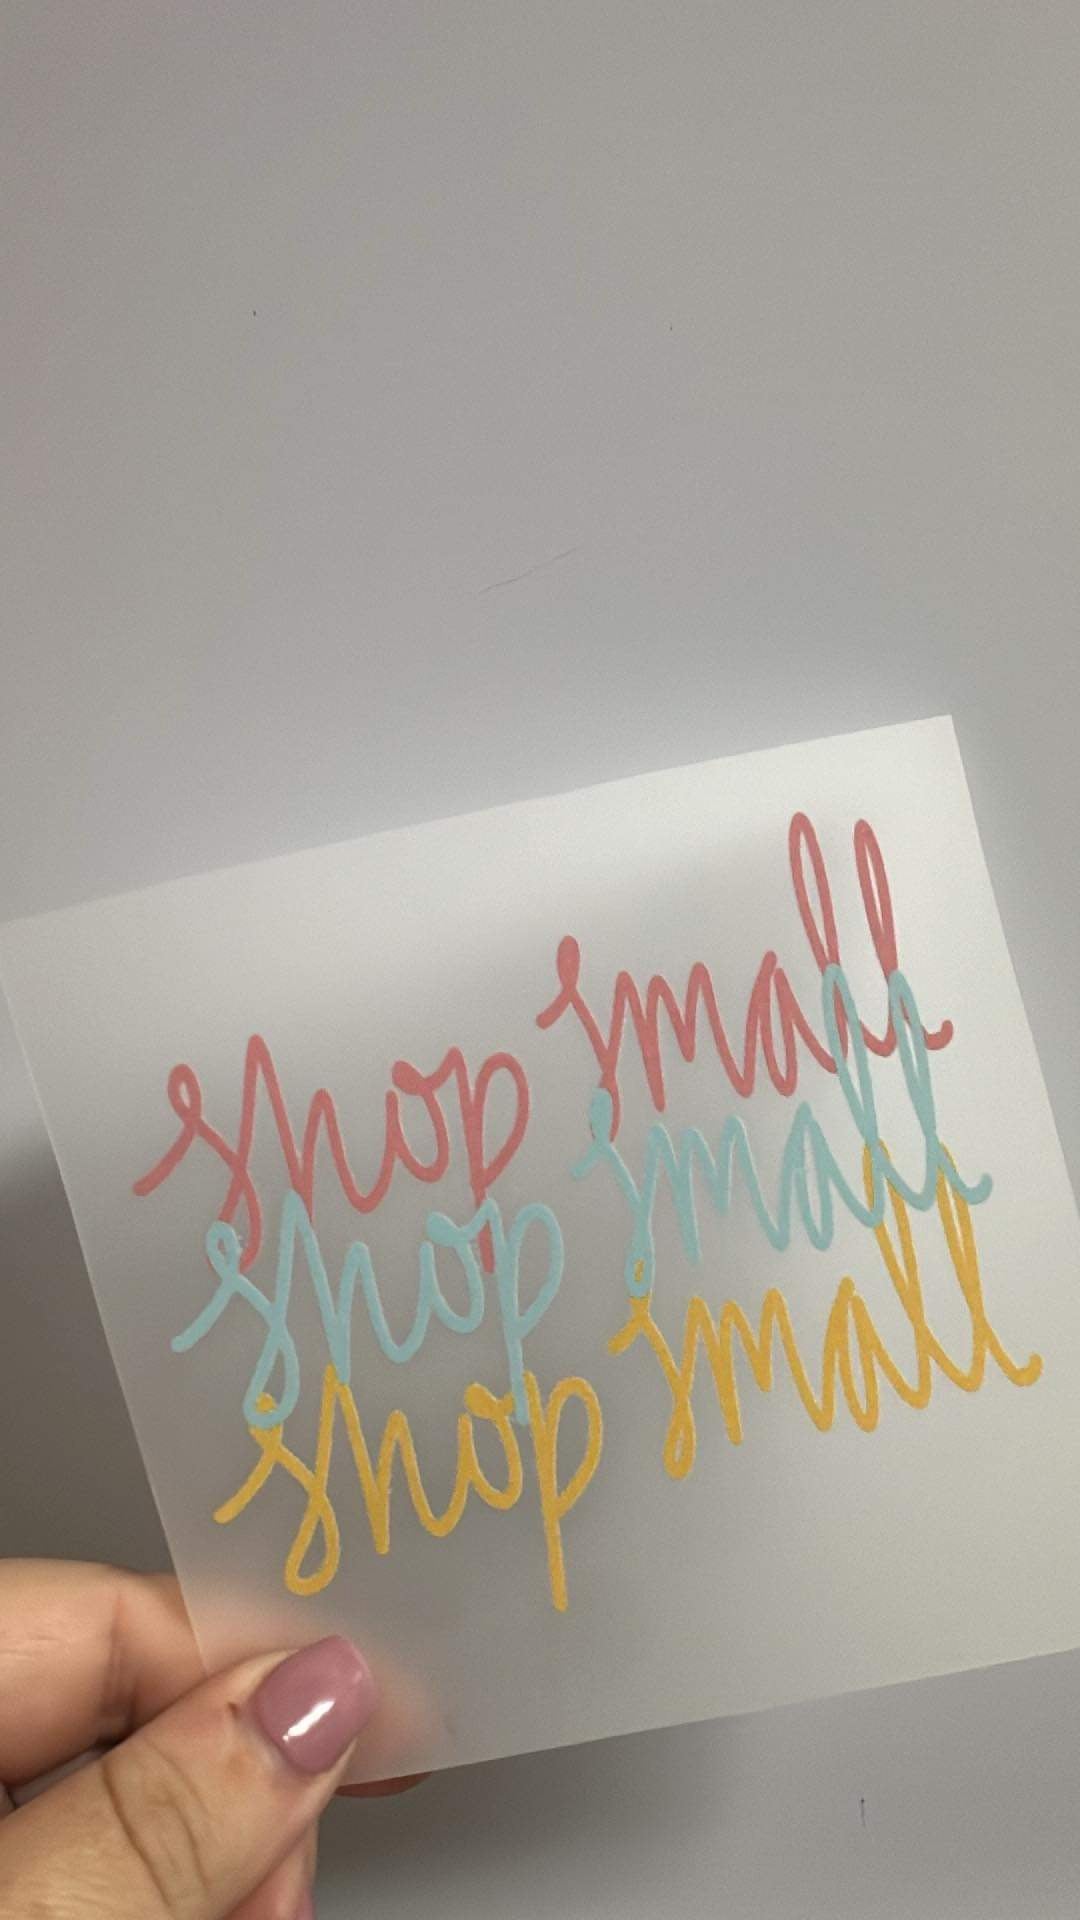 shop small
shop small
shop small